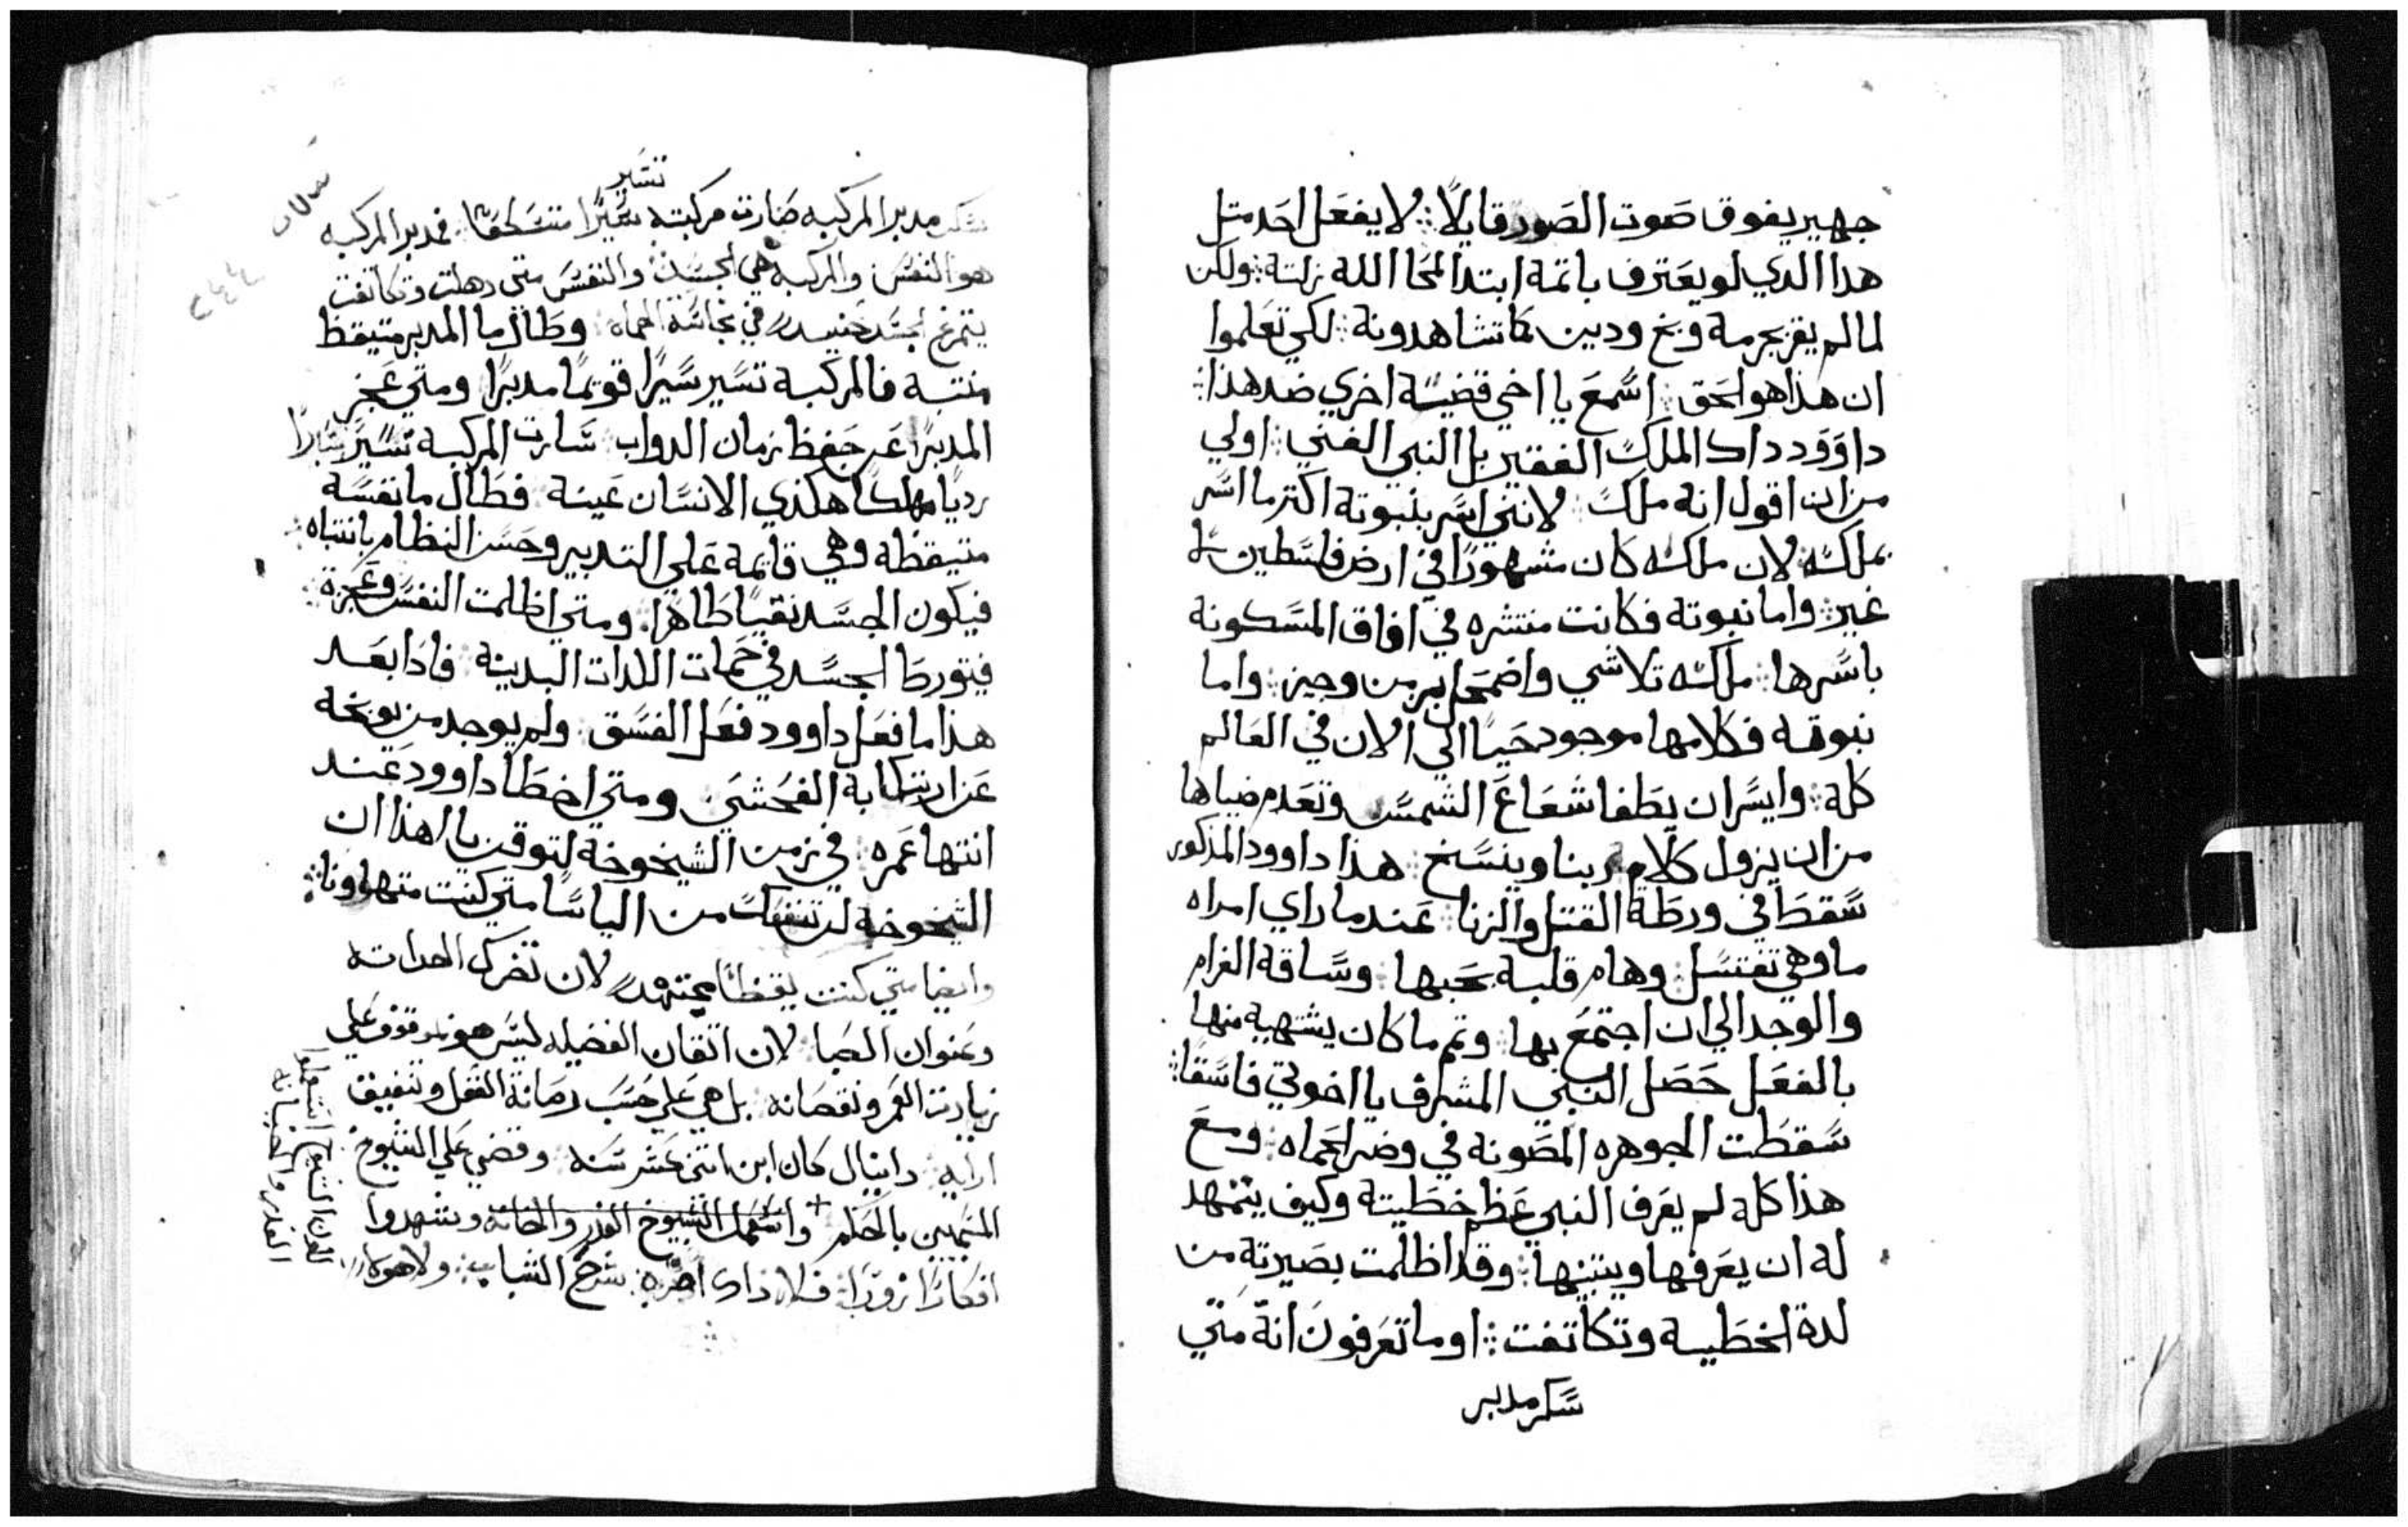 جهير يفوق صوت الصور قايلًا ⁘ لا يفعل احد متل
هدا الدي لو يعترف باتمه ابتدا لمحا الله زلته ⁘ ولكن
لما لم يقر بجرمه وبخ ودين كما تشاهدونه ⁘ لكي تعلموا
ان هذا هو الحق ⁘ اسمع يا اخي قضيه اخري ضد هذا ⁘
داوود داك الملك الفقير بل النبي الغني ⁘ اولي
من ان اقول انه ملك ⁘ لانني اسر بنبوته اكتر ما اسر
بملكه ⁘ لان ملكه كان مشهورًا في ارض فلسطين لا
غير ⁘ واما نبوته فكانت منتشره في افاق المسكونه
باسرها ⁘ ملكه تلاشي واضمحل بزمن وجيز ⁘ واما
نبوته فكلامها موجود حيًا الي الان في العالم
كله ⁘ وايسر ان يطفا شعاع الشمس وتعدم ضياها
من ان يزول كلام ربنا وينسخ ⁘ هذا داوود المذكور
سقط في ورطة القتل والزنا ⁘ عندما راي امراه
ما وهي تغتسل ⁘ وهام قلبه بحبها ⁘ وساقه الغرام
والوجد الي ان اجتمع بها ⁘ وتم ما كان يشتهيه منها
بالفعل حصل النبي المشرف يا اخوتي فاسقًا ⁘
سقطت الجوهره المصونه في وضر الحماه ⁘ ومع
هذا كله لم يعرف النبي عظم خطيته وكيف يتمهد
له ان يعرفها ويتبينها ⁘ وقد اظلمت بصيرته من
لدة الخطيه وتكاتفت ⁘ او ما تعرفون انه متي
سكر مدبر
تسير
سكر مدبر المركبه صارت مركبته سيرًا متسلحفًا ⁘ فمدبر المركبه
هو النفس والمركبه هي الجسد ⁘ والنفس متي دهلت وتكاتفت
يتمرغ الجسد حينيد في نجاسة الحماه ⁘ وطال ما المدبر متيقظ
منتبه فالمركبه تسير سيرًا قويمًا مدبرًا ومتي عجز
المدبر عن حفظ زمان الدواب ⁘ سارت المركبه تسير سيرًا
رديًا مهلكًا هكذي الانسان عينه ⁘ فطال ما نفسه
متيقظه وهي قايمة علي التدبير وحسن النظام بانتباه ⁘
فيكون الجسد نقيًا طاهرًا ⁘ ومتي اظلمت النفس وعجزة ⁘
فيتورط الجسد في حمات اللدات البدينه ⁘ فادا بعد
هذا ما فعل داوود فعل الفسق ⁘ ولم يوجد من يوبخه
عن ارتكابه الفحشي ⁘ ومتي اخطا داوود عند
انتها عمره ⁘ في زمن الشيخوخة لتوقن يا هذا ان
الشيخوخه لن تنشلك من الباسا متي كنت متهاونا ⁘
وايضا متي كنت يقظًا مجتهد لان تضرك الحداته
وعنوان الصبا ⁘ لان اتقان الفضيله ليس هو موقوف علي
زيادت العمر ونقصانه ⁘ بل هي علي حسب رصانة العقل وتنفيق
ارايه ⁘ دانيال كان ابن اتني عشر سنه ⁘ وقضي علي الشيوخ
المنجمين بالحكم + واستعمل الشيوخ الغدر والخانه وشهدوا
افكارًا زورًا ⁘ فلا ذاك اضره شرخ الشباب ⁘ ولا هولاي
الغدر والخيانه